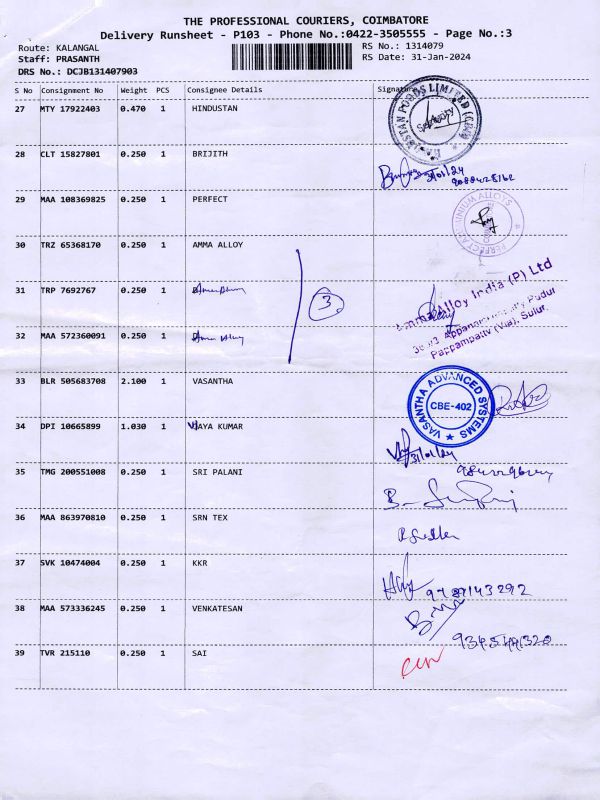 THE PROFESSIONAL COURIERS, COIMBATORE
Delivery Runsheet - P103 - Phone No.:0422-3505555 - Page No.:3
Route: KALANGAL
RS No.: 1314079
Staff: PRASANTH
RS Date: 31-Jan-2024
DRS No.: DCJB131407903
S No Consignment No Weight PCS Consignee Details Signature
27 MTY 17922403 0.470 1 HINDUSTAN
28 CLT 15827801 0.250 1 BRIJITH
31/01/24
29 MAA 108369825 0.250 1 PERFECT
PERFECT ALUMINIUM ALLOYS
30 TRZ 65368170 0.250 1 AMMA ALLOY
3
31 TRP 7692767 0.250 1 Amma Alloy
Amma Alloy India (P) Ltd
Pappampatti (Via), Sulur.
32 MAA 572360091 0.250 1 Amma Alloy
33 BLR 505683708 2.100 1 VASANTHA
VASANTHA ADVANCED SYSTEMS
CBE-402
34 DPI 10665899 1.030 1 VIJAYA KUMAR
31/01/24
35 TMG 200551008 0.250 1 SRI PALANI
36 MAA 863970810 0.250 1 SRN TEX
37 SVK 10474004 0.250 1 KKR
9789143292
38 MAA 573336245 0.250 1 VENKATESAN
39 TVR 215110 0.250 1 SAI